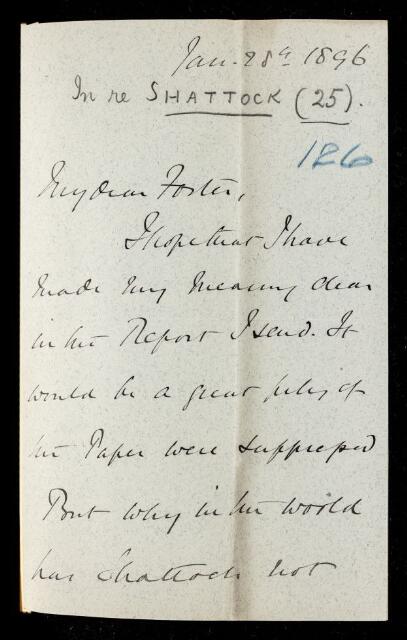 Jan. 28th 1896
In re SHATTOCK (25).
126
My dear Foster,
I hope that I have
made my meaning clear
in the Report I send. It
would be a great pity if
the Paper were suppressed
But why in the world
has Shattock not